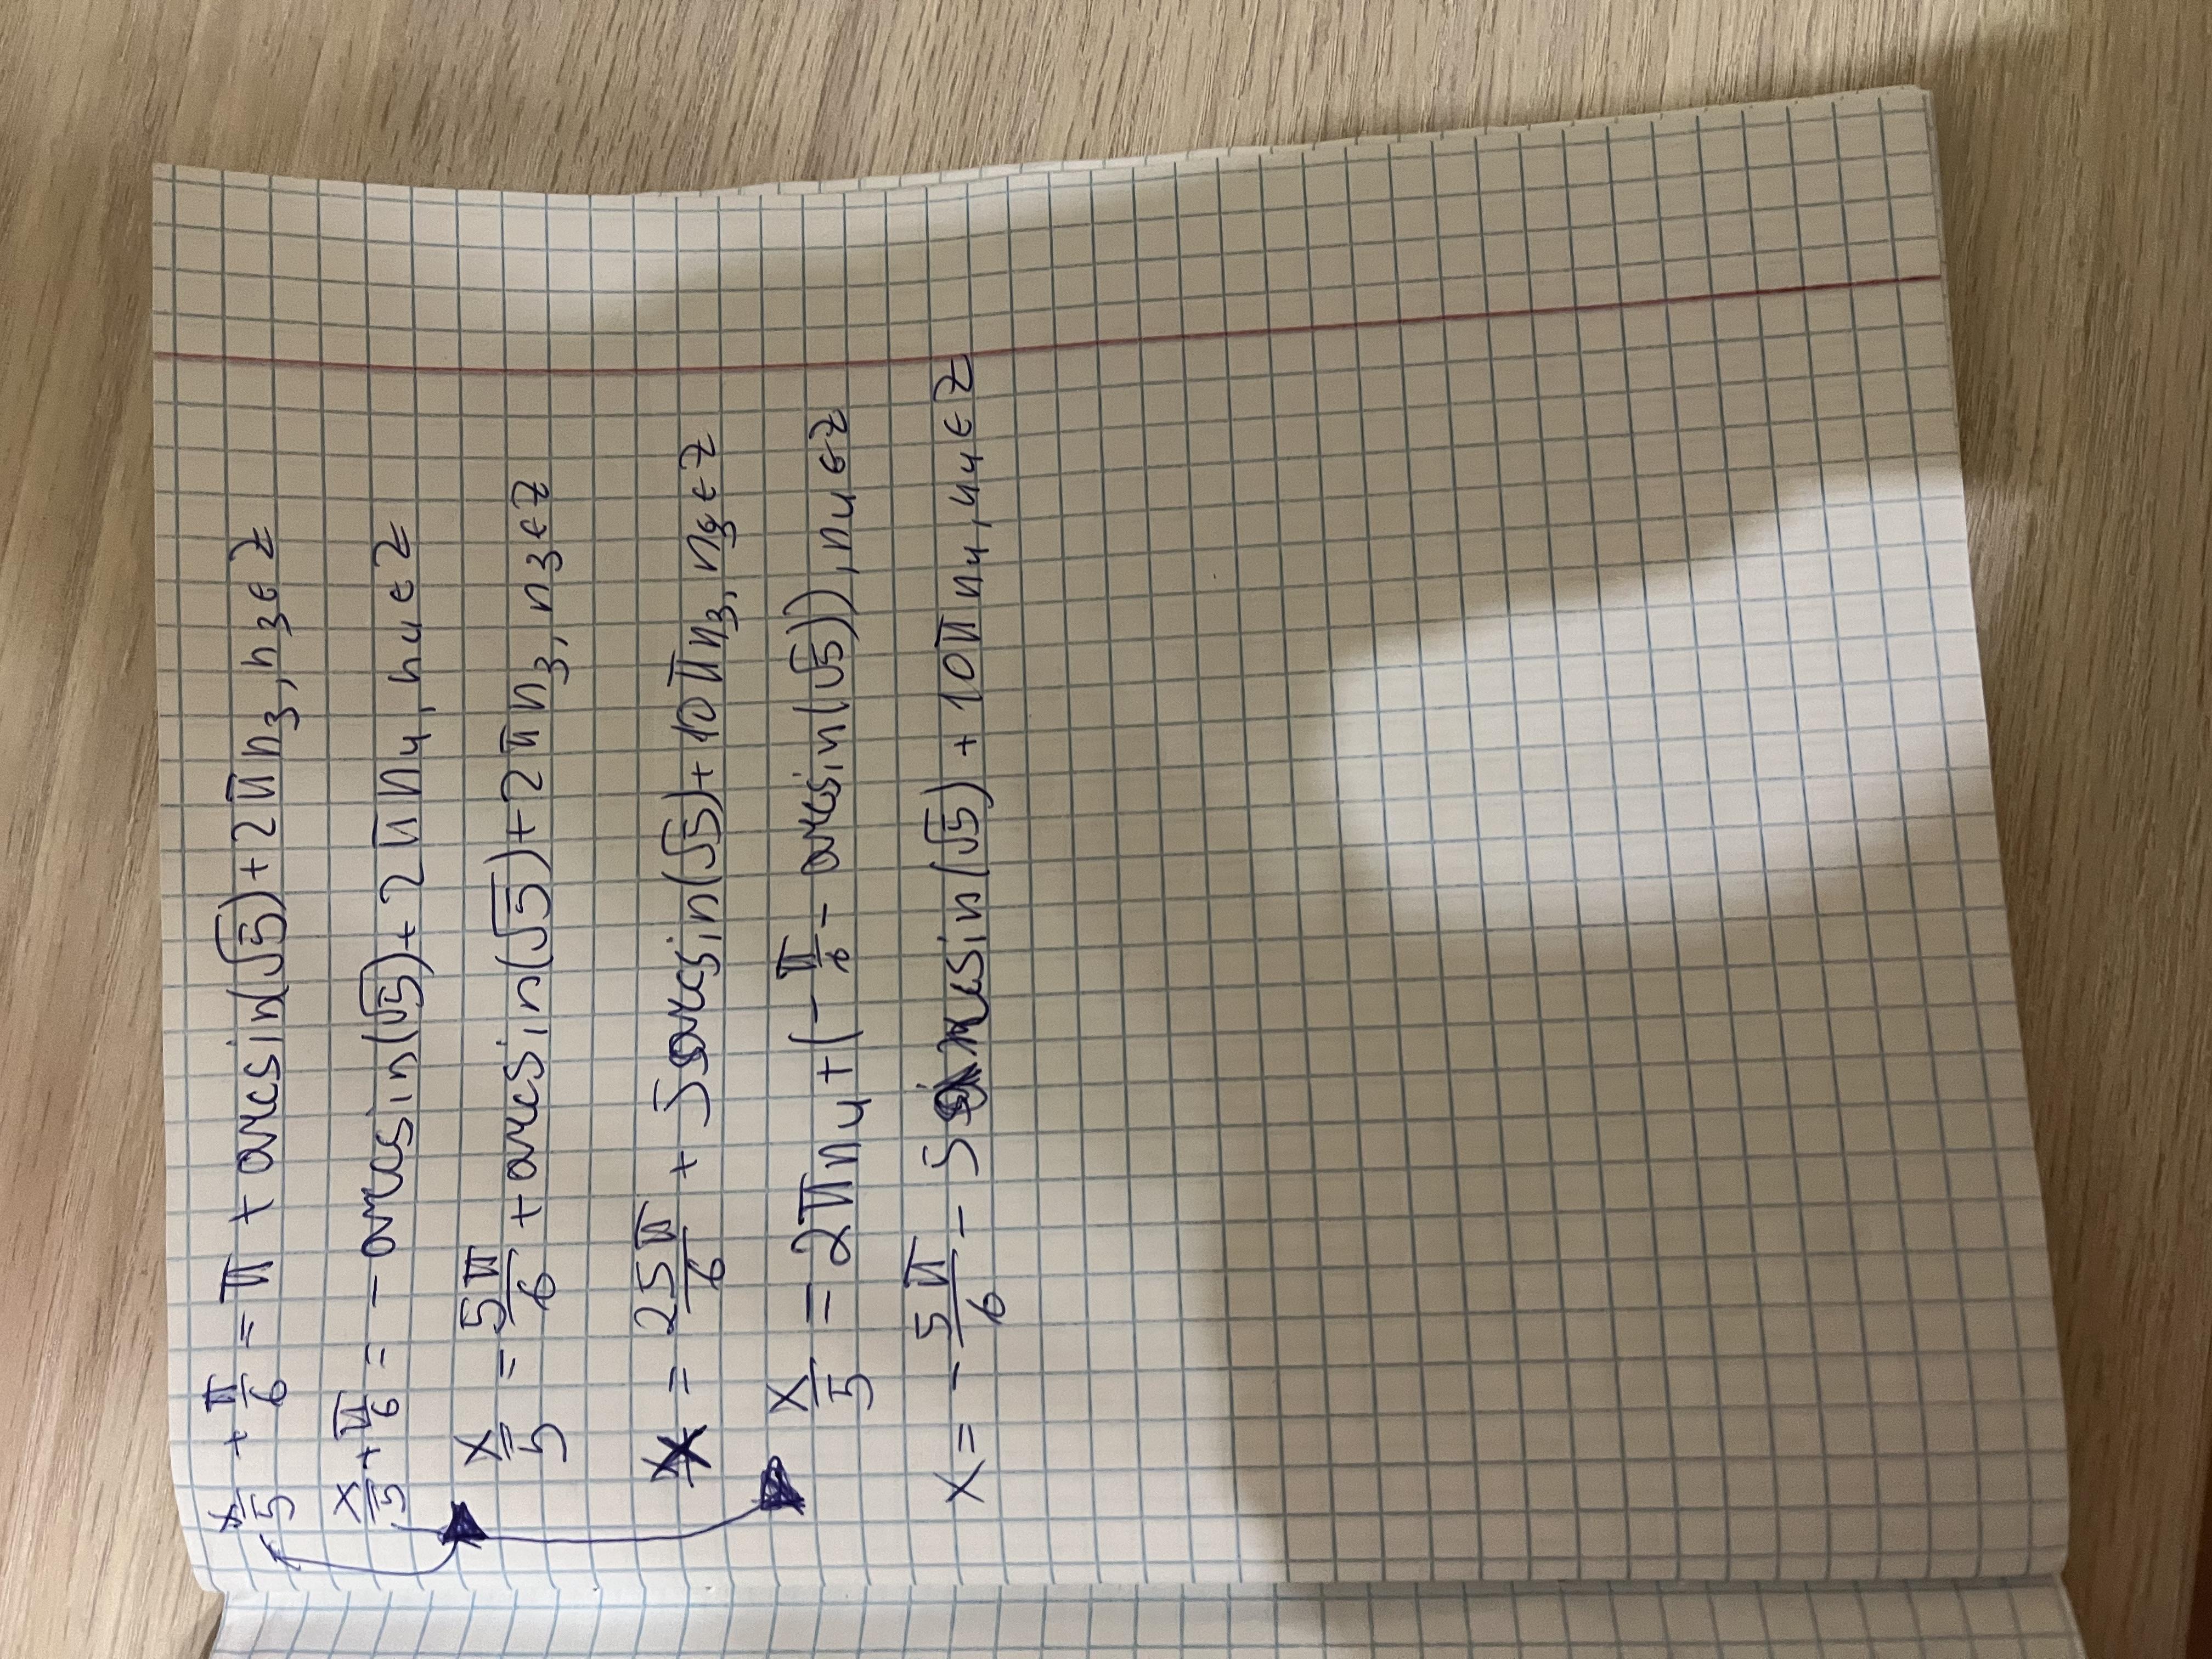 x/5 + π/6 = π + arcsin(√5) + 2πn₃, n₃ ∈ Z
x/5 + π/6 = - arcsin(√5) + 2πn₄, n₄ ∈ Z
x/5 = 5π/6 + arcsin(√5) + 2πn₃, n₃ ∈ Z
x = 25π/6 + 5arcsin(√5) + 10πn₃, n₃ ∈ Z
x/5 = 2πn₄ + (-π/6 - arcsin(√5)), n₄ ∈ Z
x = -5π/6 - 5arcsin(√5) + 10πn₄, n₄ ∈ Z